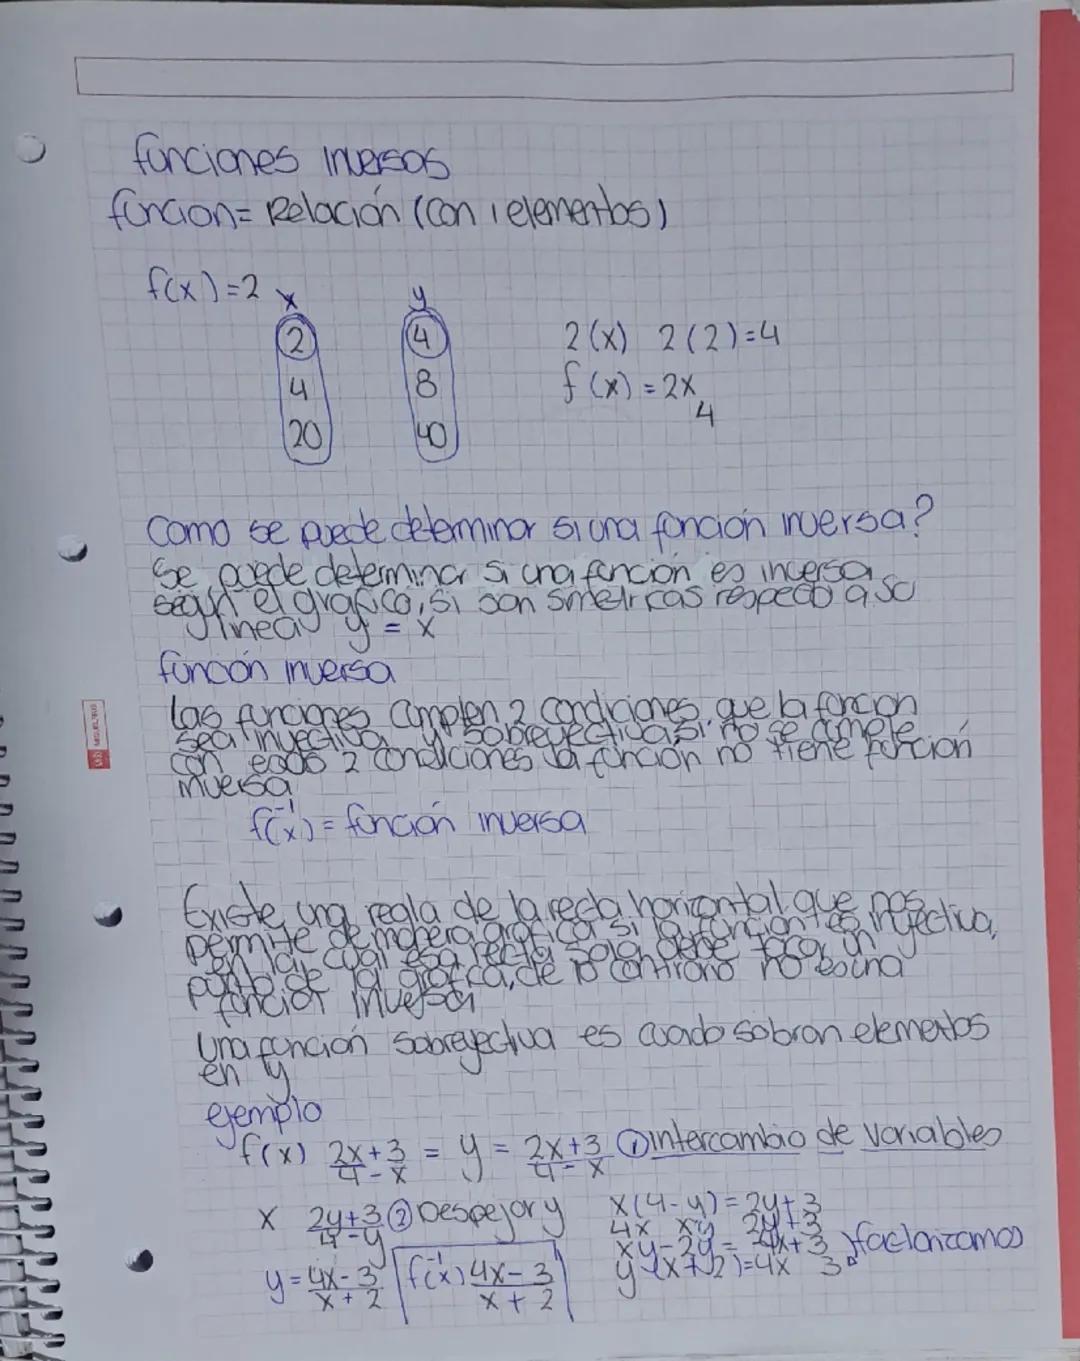 funciones inversas
función= Relación (con 1 elementos)
f(x)=2
x y
2 4 2(x) 2(2)=4
4 8 f(x)=2x
4
20 40
Como se puede determinar si una función inversa?
Se puede determinar si una función es inversa
según el gráfico, si son simetricas respecto a su
linea y = x
función inversa
Las funciones cumplen 2 condiciones, que la función
sea inyectiva y sobreyectiva si no se cumple
con esas 2 condiciones la función no tiene función
inversa
f⁻¹(x) = función inversa
Existe una regla de la recta horizontal que nos
permite de manera gráfica si la función es inyectiva,
en la cual esa recta solo debe tocar un
punto de la gráfica, de lo contrario no es una
función inversa
Una función sobreyectiva es cuado sobran elementos
en y
ejemplo
f(x) 2x+3/4-x = y = 2x+3/4-x ① intercambio de variables
x 2y+3/4-y ② Despejar y x(4-y)=2y+3
4x xy 2y+3
xy-2y= 4x+3 } factorizamos
y=4x-3/x+2 f⁻¹(x) 4x-3/x+2 y(x+2)=4x 3
MIGUELRIUS